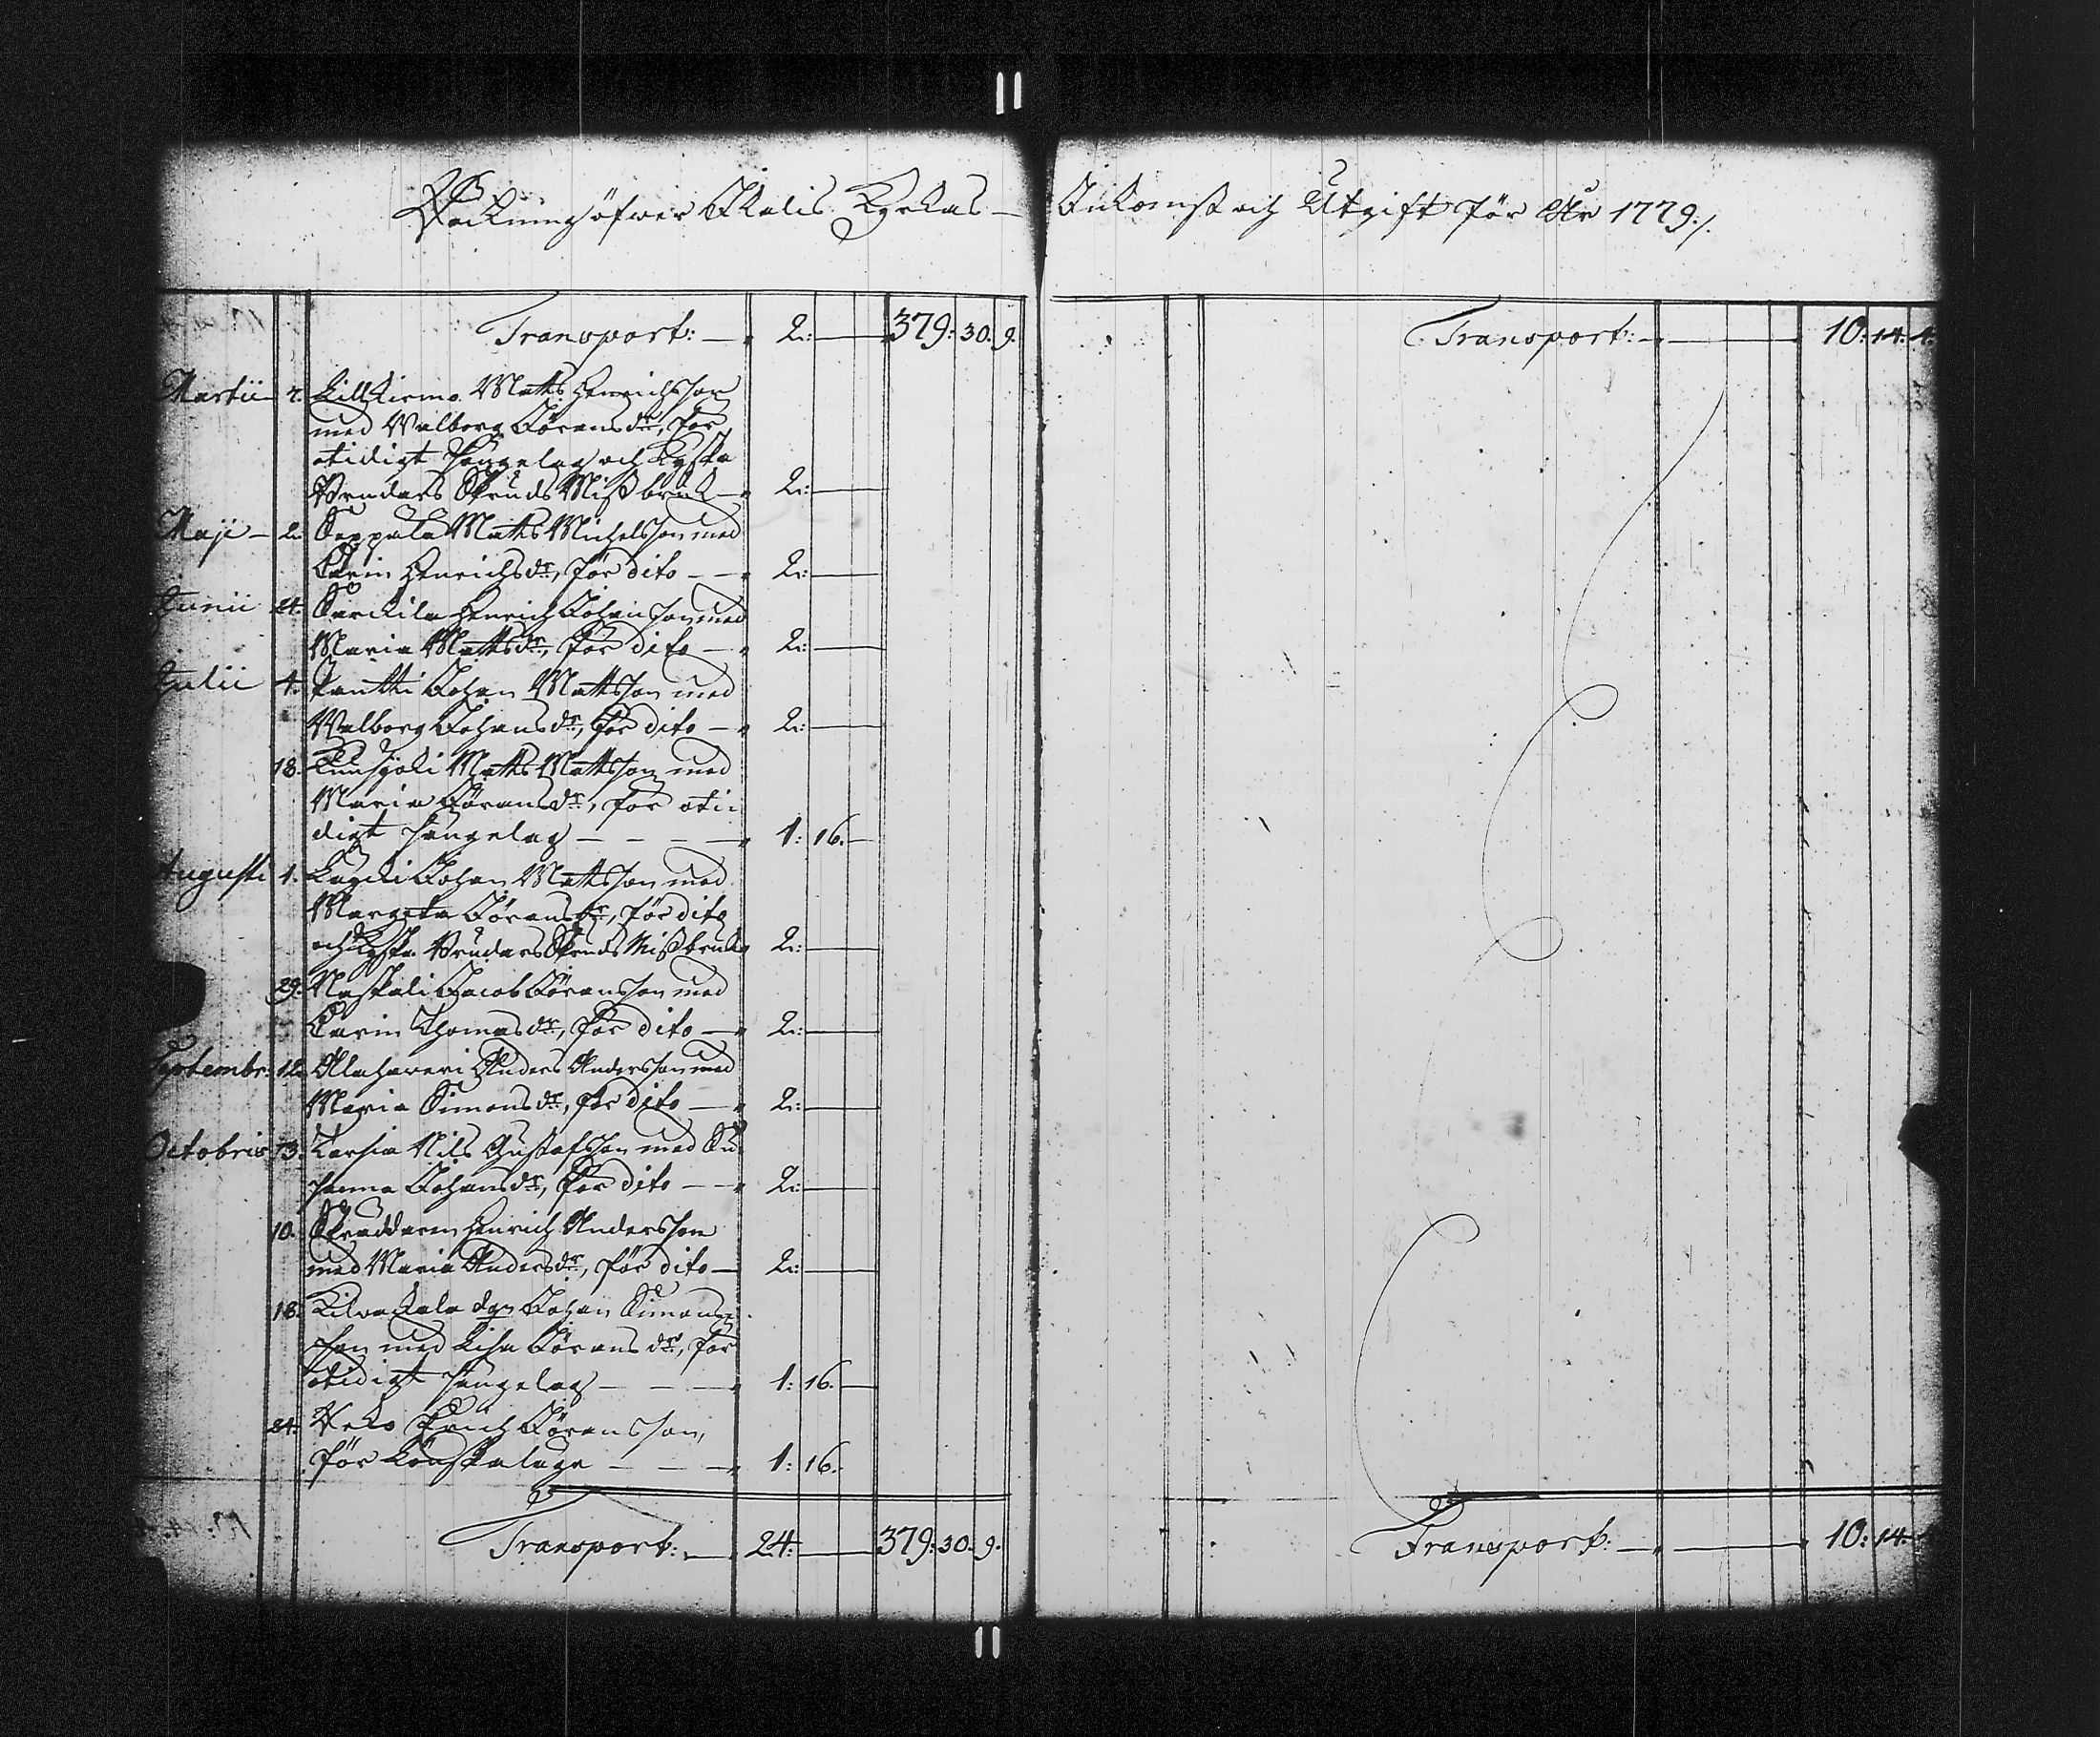 Räkning öfwer Ikalis Kyrkas —
Transport: — 2: — 379: 30. 9.
Martii 7. Lillkirmo Matts Henrichsson
med Walborg Jöransdr, för
otidigt Sängelag och Kyska
Brudars Skruds Missbruk — 2: —
Maji — 2. Seppälä Matts Michelsson med
Carin Henrichsdr, för dito — — 2: —
Junii 24. Särkilä Henrich Johansson med
Maria Mattsdr, för dito — 2: —
Julii 4. Pantti Johan Mattsson med
Walborg Johansdr, för dito — 2: —
18. Matts Mattsson med
Maria Jöransdr, för oti-
digt Sängelag — — — 1: 16. —
Augusti 1. Johan Mattsson med
Margeta Jöransdr, för dito
och Kyska Brudars Skruds Missbruk 2: —
29. Jacob Jöransson med
Carin Thomasdr, för dito — 2: —
Septembr: 12. Anders Andersson med
Maria Simonsdr, för dito — 2: —
Octobris 3. Nils Gustafsson med Su-
sanna Johansdr, för dito — — 2: —
10. Skräddaren Henrich Andersson
med Maria Andersdr, för dito — 2: —
18. Kilvakala Johan Simons-
son med Lisa Jörans dr, för
otidigt Sängelag — — — 1: 16. —
24. Erich Jöransson,
för Lönskaläge — — — 1: 16.
Transport: — 24: — 379: 30. 9.
Inkomst och Utgift för År 1779./.
Transport: — — 10: 14. 4.
Transport: — — 10: 14.